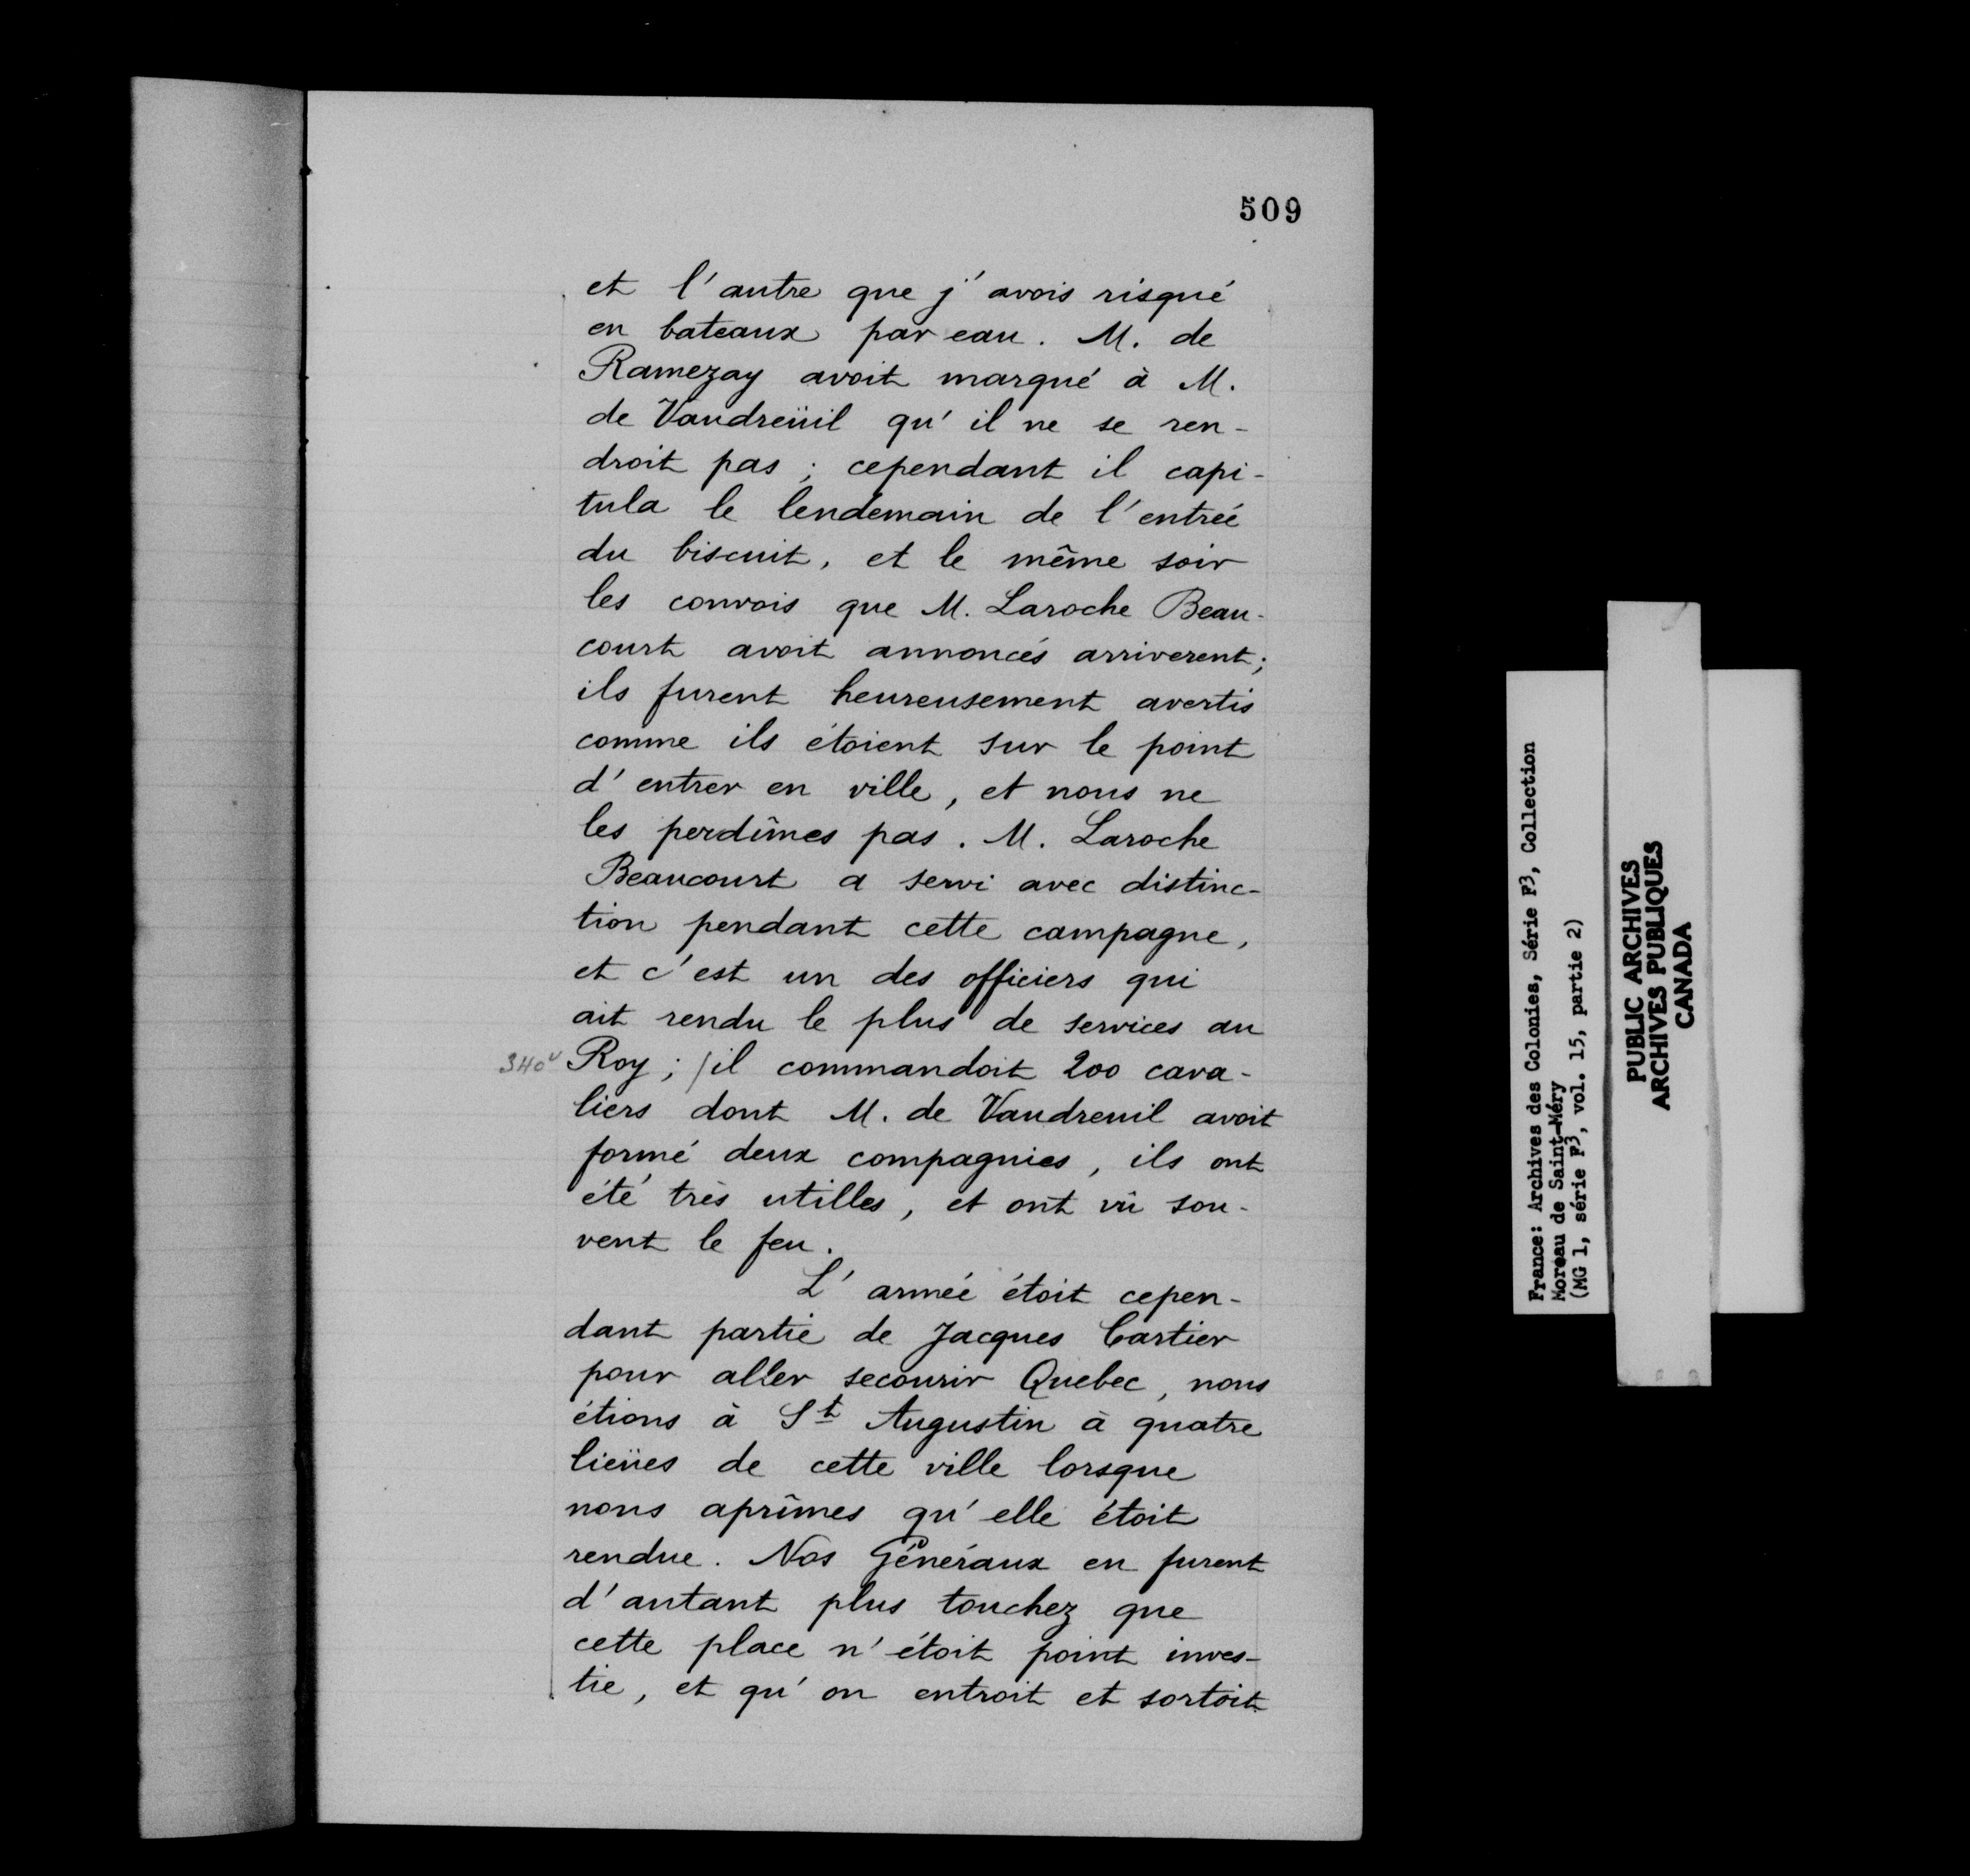 509
et l'autre que j'avois risqué
en bateaux par eau. M. de
Ramezay avoit marqué à M.
de Vaudreüil qu'il ne se ren-
droit pas; cependant il capi-
tula le lendemain de l'entrée
du biscuit, et le même soir
les convois que M. Laroche Beau-
court avoit annoncés arriverent;
ils furent heureusement avertis
comme ils étoient sur le point
d'entrer en ville, et nous ne
les perdîmes pas. M. Laroche
Beaucourt a servi avec distinc-
tion pendant cette campagne,
et c'est un des officiers qui
ait rendu le plus de services au
340v Roy; /il commandoit 200 cava-
liers dont M. de Vaudreuil avoit
formé deux compagnies, ils ont
été très utilles, et ont vû sou-
vent le feu.
L'armée étoit cepen-
dant partie de Jacques Cartier
pour aller secourir Quebec, nous
étions à St Augustin à quatre
lieües de cette ville lorsque
nous aprîmes qu'elle étoit
rendue. Nos Généraux en furent
d'autant plus touchez que
cette place n'étoit point inves-
tie, et qu'on entroit et sortoit
France: Archives des Colonies, Série F3, Collection
Moreau de Saint-Méry
(MG 1, série F3, vol. 15, partie 2)
PUBLIC ARCHIVES
ARCHIVES PUBLIQUES
CANADA